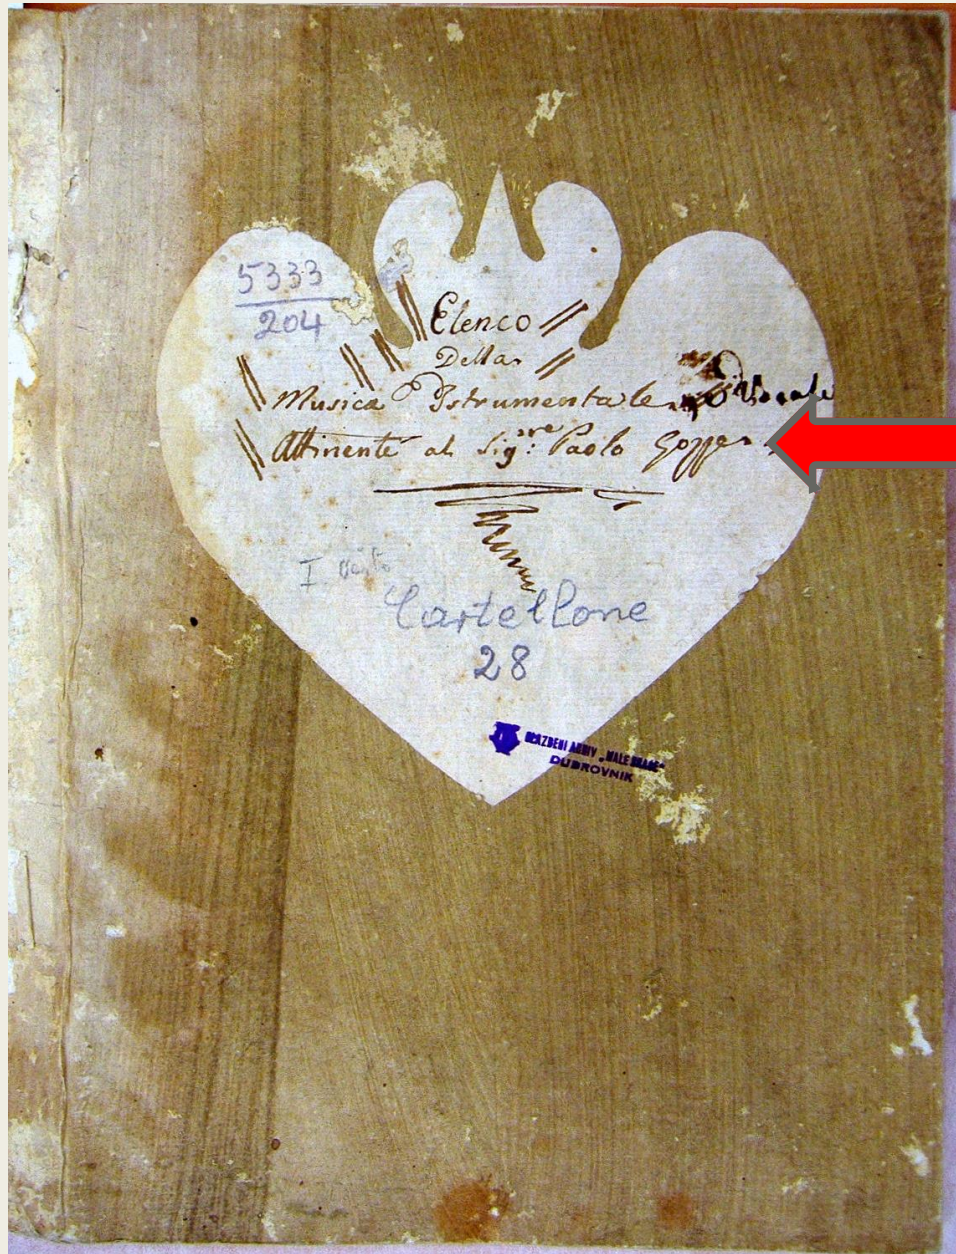 5333
204
Elenco
Della
Musica Istrumentale Vocale
Attinente al Sig:re Paolo Gozze
I
Cartellone
28
GLAZBENI ARHIV „MALE BRAĆE"
DUBROVNIK